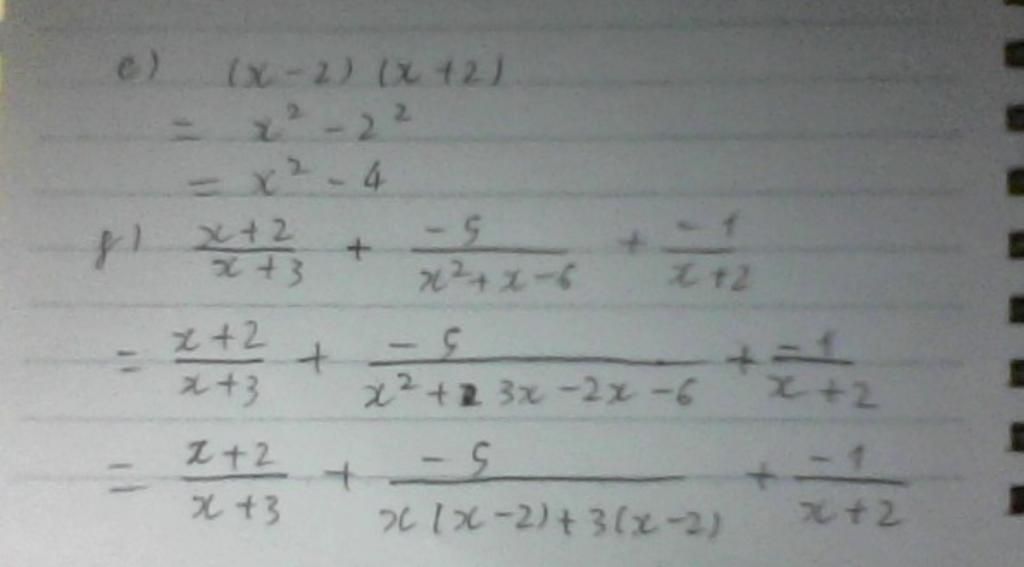 e) (x-2)(x+2)
= x² - 2²
= x² - 4
f) \frac{x+2}{x+3} + \frac{-5}{x²+x-6} + \frac{-1}{x+2}
= \frac{x+2}{x+3} + \frac{-5}{x²+3x-2x-6} + \frac{-1}{x+2}
= \frac{x+2}{x+3} + \frac{-5}{x(x-2)+3(x-2)} + \frac{-1}{x+2}